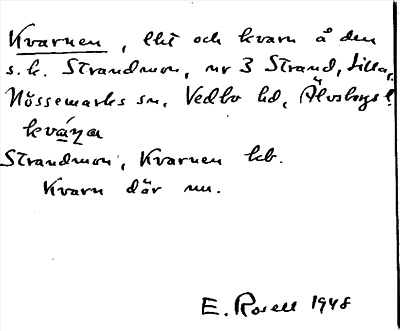 Kvarnen, lht och kvarn å den
s.k. Strandmon, nr 3 Strand, Lilla,
Nössemarks sn, Vedbo hd, Älvsborgs l.
kvá̱ɳa
Strandmon, Kvarnen kb.
Kvarn där nu.
E. Rosell 1948